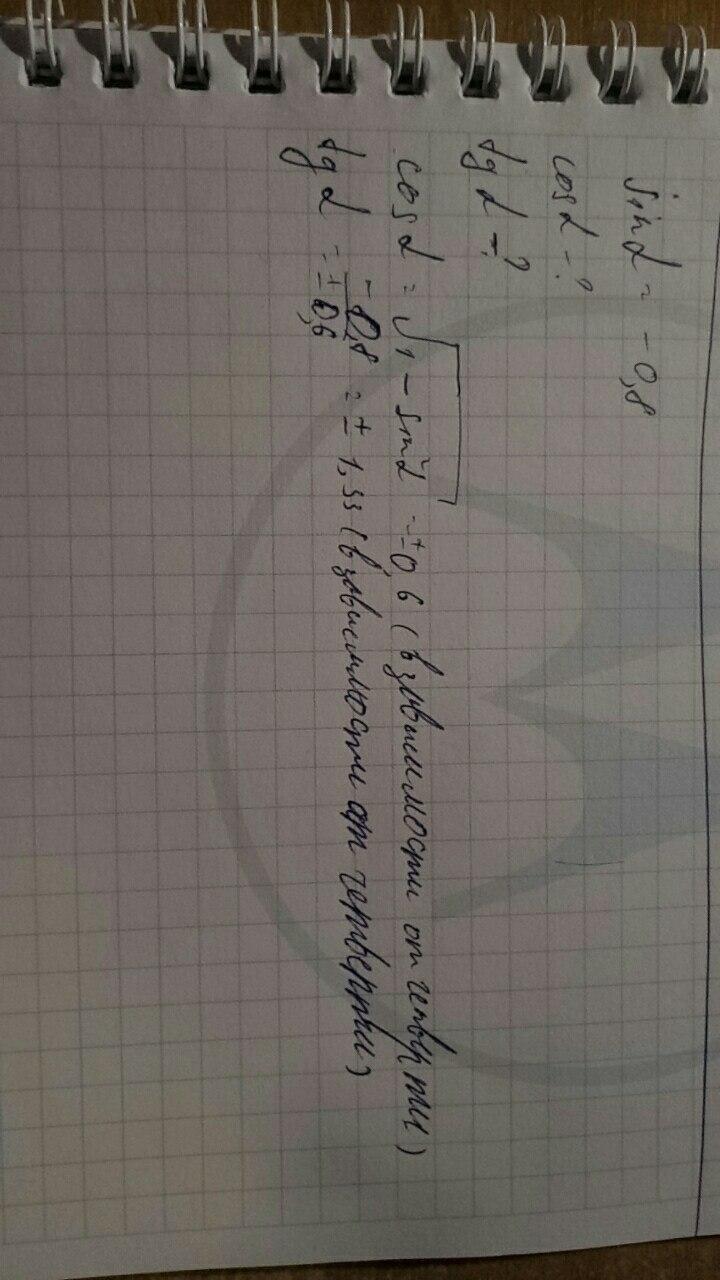 sin α = -0,8
cos α - ?
tg α - ?
cos α = √1 - sin²α = ±0,6 (в зависимости от четверти)
tg α = -0,8 / ±0,6 = ± 1,33 (в зависимости от четверти)